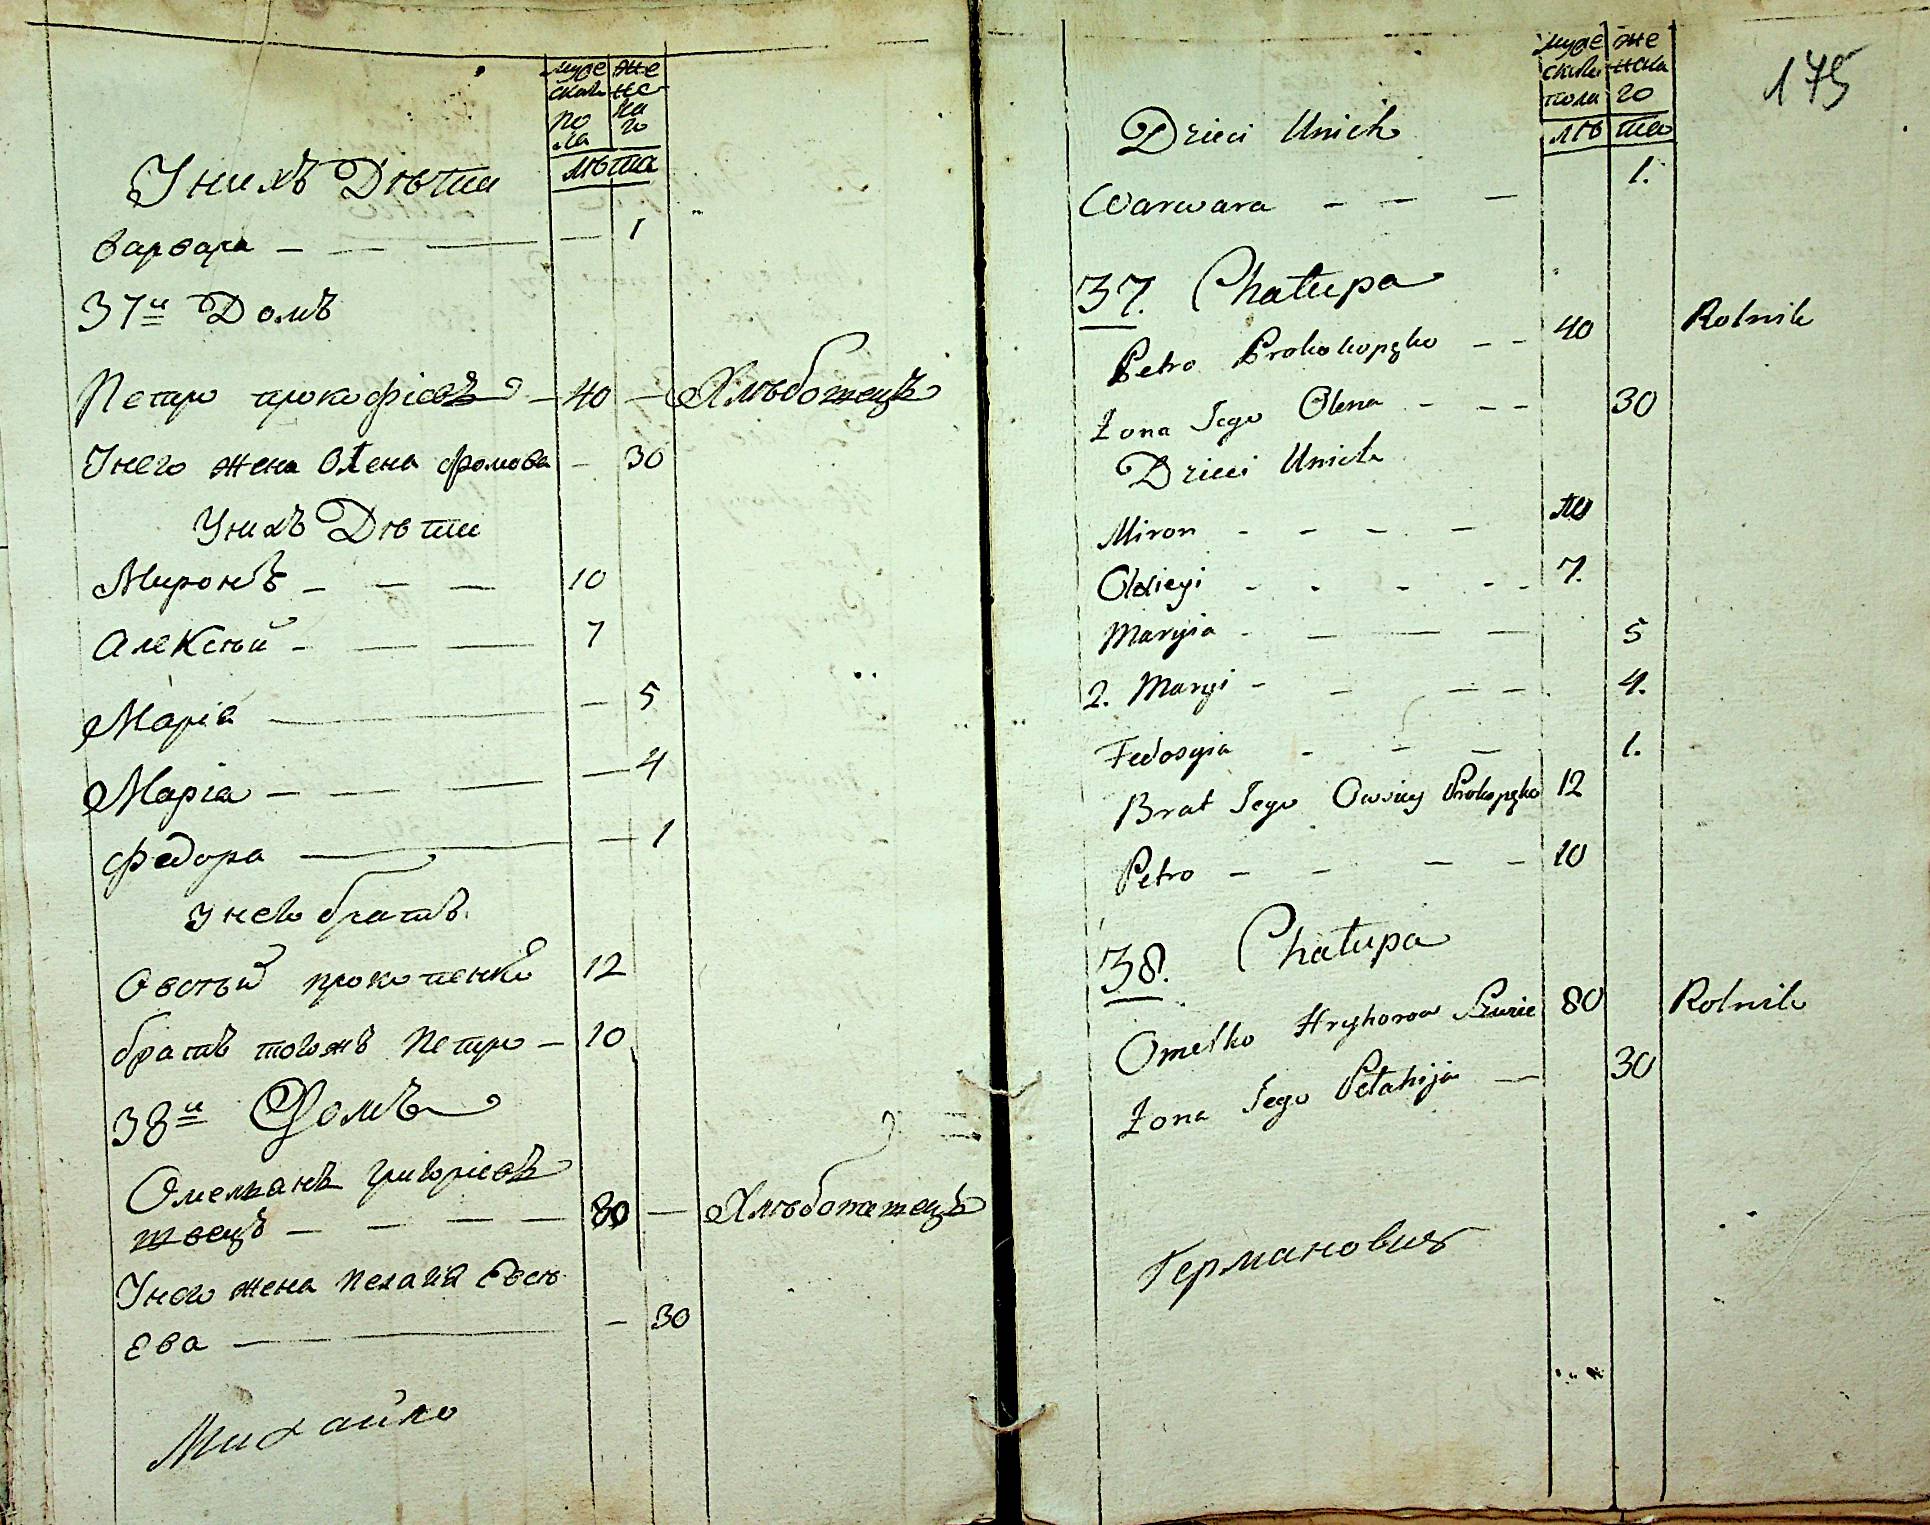 муже скаго пола
же нска го
лѣта
У нихъ Дѣти
Варвара — — — — 1
37й Домъ
Петро прокофіевъ — 40 — Хлѣбопашецъ
У него жена Олена фомова — 30
У нихъ Дѣти
Миронъ — — — 10
Алексѣй — — — 7
Марія — — 5
Марія — — — — 4
Федора — — 1
У него братъ
Овсѣй прокопенко 12
братъ тогожъ Петро — 10
38й Домъ
Омельянъ григоріевъ
швецъ — — — — 80 — Хлѣбопашецъ
У него жена Пелагія Евсѣ
ева — — 30
Михайло
175
муже скаго пола
же нска го
лѣ та
Dzieci Unich
Warwara — — — 1.
37. Chałupa
Petro Prokokopęko — — 40 Rolnik
Żona Jego Olena — — — 30
Dzieci Unich
Miron — — — — 10
Olexieyi — — — — — 7.
Maryia — — — — 5
2. Maryi — — — — 4.
Fedosyia — — — 1.
Brat Jego Owsiey Prokopęko 12
Petro — — — — 10
38. Chałupa
Omelko Hryhorow 80 Rolnik
Żona Jego Pełahija — 30
Германовичъ